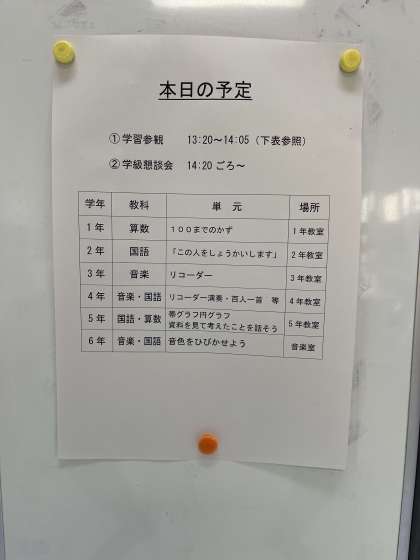 本日の予定
①学習参観 13:20～14:05（下表参照）
②学級懇談会 14:20ごろ～
学年 教科 単元 場所
1年 算数 １００までのかず 1年教室
2年 国語 「この人をしょうかいします」 2年教室
3年 音楽 リコーダー 3年教室
4年 音楽・国語 リコーダー演奏・百人一首　等 4年教室
5年 国語・算数 帯グラフ円グラフ 5年教室
資料を見て考えたことを話そう
6年 音楽・国語 音色をひびかせよう 音楽室